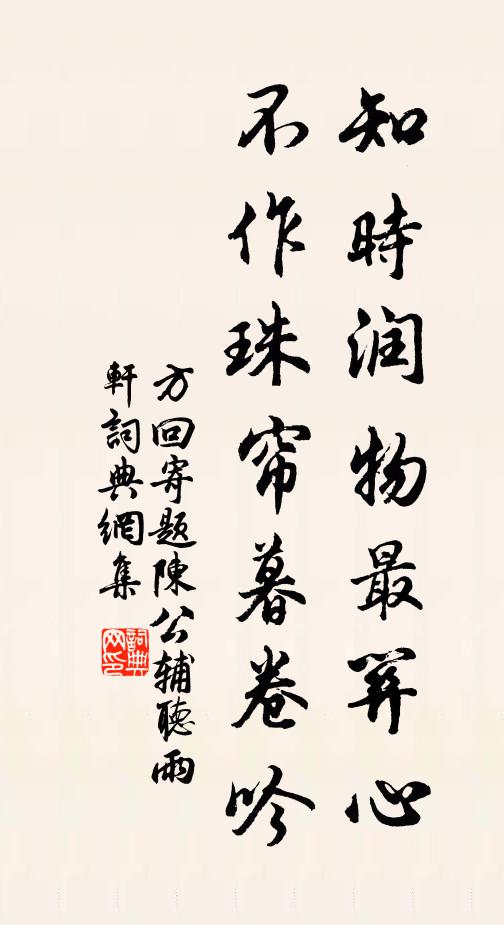 知時润物最關心
不作珠帘暮卷吟
方回寄题陳公辅聽雨
軒詞典網集
詞典网印